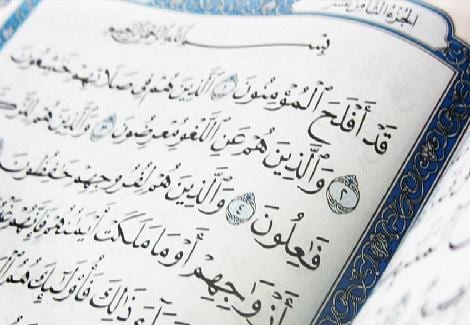 الجزء الثامن عشر
بسم الله الرحمن الرحيم
قَدْ أَفْلَحَ ٱلْمُؤْمِنُونَ ١ ٱلَّذِينَ هُمْ فِى صَلَاتِهِمْ خَٰشِعُونَ
٢ وَٱلَّذِينَ هُمْ عَنِ ٱللَّغْوِ مُعْرِضُونَ ٣ وَٱلَّذِينَ هُمْ
فَٰعِلُونَ ٤ وَٱلَّذِينَ هُمْ لِفُرُوجِهِمْ حَٰفِظُونَ
أَزْوَٰجِهِمْ أَوْ مَا مَلَكَتْ أَيْمَٰنُهُمْ فَإِنَّهُمْ
ذَٰلِكَ فَأُو۟لَٰٓئِكَ هُمُ